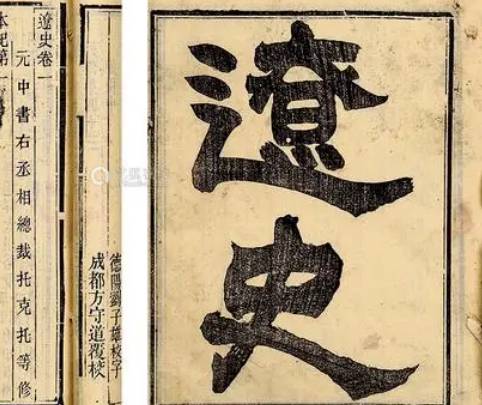 遼史
遼史卷一
本紀第一
元中書右丞相總裁托克托等修
德陽劉子雄校字
成都方守道覆校